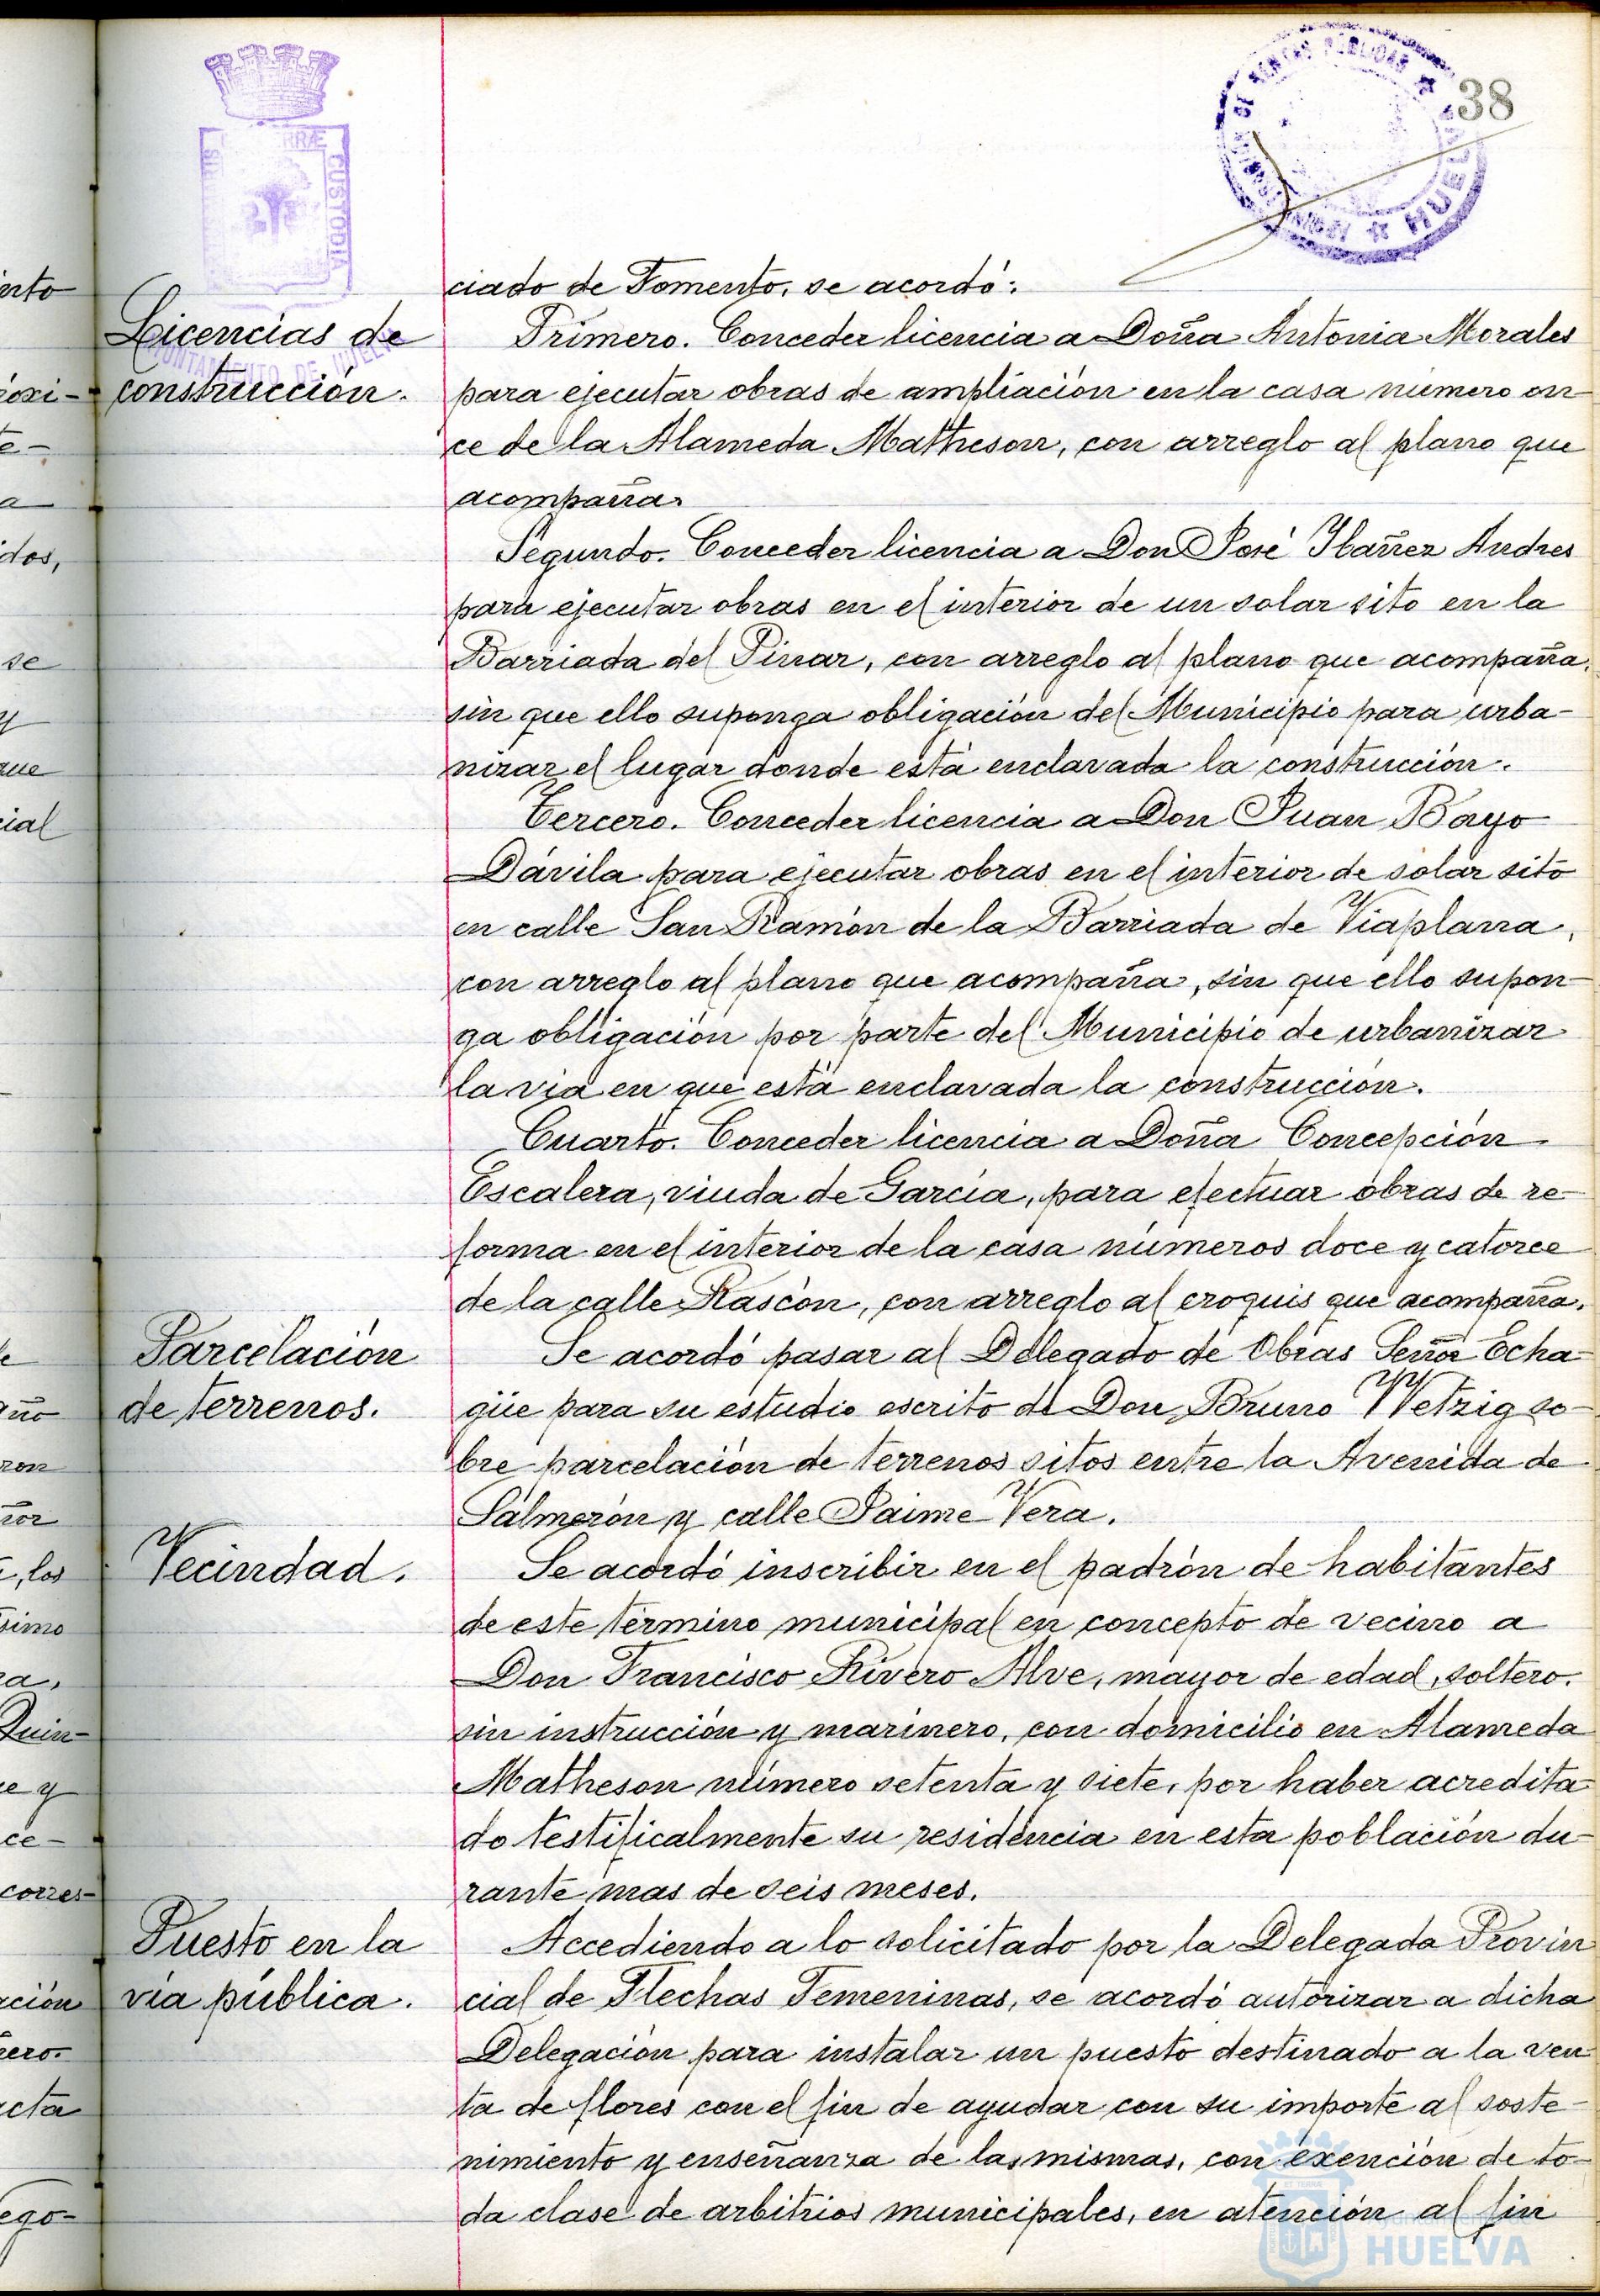 38
ciado de Fomento, se acordó:
Licencias de
construcción.
Primero. Conceder licencia a Doña Antonia Morales
para ejecutar obras de ampliación en la casa número on-
ce de la Alameda Matheson, con arreglo al plano que
acompaña.
Segundo. Conceder licencia a Don José Ybañez Andres
para ejecutar obras en el interior de un solar sito en la
Barriada del Pinar, con arreglo al plano que acompaña,
sin que ello suponga obligación del Municipio para urba-
nizar el lugar donde está enclavada la construcción.
Tercero. Conceder licencia a Don Juan Bayo
Dávila para ejecutar obras en el interior de solar sito
en calle San Ramón de la Barriada de Viaplana,
con arreglo al plano que acompaña, sin que ello supon-
ga obligación por parte del Municipio de urbanizar
la via en que está enclavada la construcción.
Cuarto. Conceder licencia a Doña Concepción
Escalera, viuda de García, para efectuar obras de re-
forma en el interior de la casa números doce y catorce
de la calle Rascón, con arreglo al croquis que acompaña.
Parcelación
de terrenos.
Se acordó pasar al Delegado de Obras Señor Echa-
güe para su estudio escrito de Don Bruno Wetzig so-
bre parcelación de terrenos sitos entre la Avenida de
Salmerón y calle Jaime Vera.
Vecindad.
Se acordó inscribir en el padrón de habitantes
de este término municipal en concepto de vecino a
Don Francisco Rivero Alve, mayor de edad, soltero,
sin instrucción y marinero, con domicilio en Alameda
Matheson número setenta y siete, por haber acredita-
do testificalmente su residencia en esta población du-
rante mas de seis meses.
Puesto en la
vía pública.
Accediendo a lo solicitado por la Delegada Provin
cial de Flechas Femeninas, se acordó autorizar a dicha
Delegación para instalar un puesto destinado a la ven
ta de flores con el fin de ayudar con su importe al soste-
nimiento y enseñanza de las mismas, con exención de to-
da clase de arbitrios municipales, en atención al fin
HUELVA